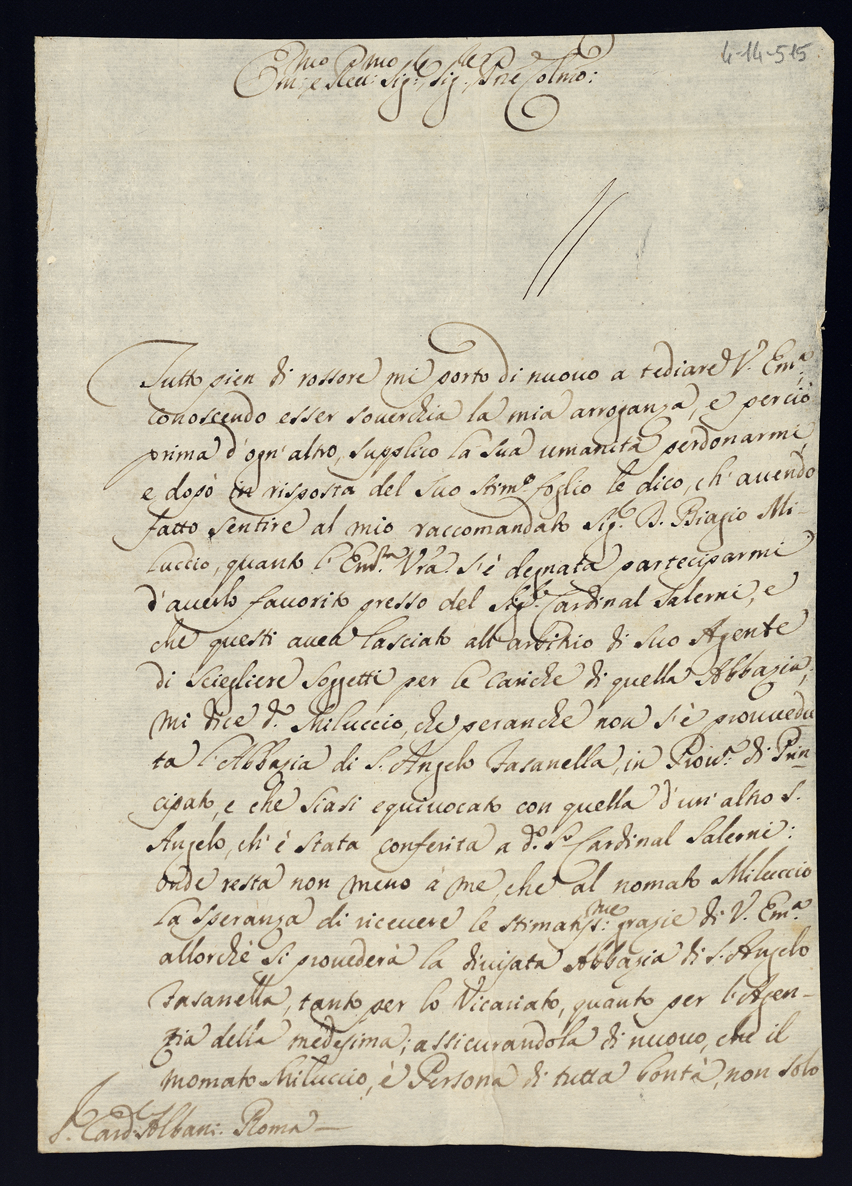 4-14-515
Em:mo e Rev:mo Sig:re Sig:re Pne Colmo:
Tutto pien di rossore mi porto di nuovo a tediare V. Em:a,
conoscendo esser soverchia la mia arroganza, e perciò
prima d'ogn'altro, supplico la sua umanità perdonarmi,
e dopò in risposta del suo stimo foglio le dico, ch'avendo
fatto sentire al mio raccomandato Sig.r D. Biagio Mi-
luccio, quanto l'Em:za Vra. s'è degnata parteciparmi
d'averlo favorito presso del Sig.r Cardinal Salerni, e
che questi avea lasciato all'arbitrio di suo Agente
di scieglìere soggetti per le cariche di quella Abbazia;
mi dice d.o Miluccio, che peranche non s'è provvedu
ta l'Abbazia di S. Angelo Fasanella, in Prov.a di Prin-
cipato, e che siasi equivocato con quella d'un'altro S.
Angelo, ch'è stata conferita a d.o S.r Cardinal Salerni:
onde resta non meno à me, che al nomato Miluccio
la speranza di ricevere le stimatis:me grazie di V. Em:a
allorchè si provederà la divisata Abbazia di S. Angelo
Fasanella, tanto per lo Vicariato, quanto per l'Agen-
zia della medesima; assicurandola di nuovo, che il
nomato Miluccio, è Persona di tutta bontà, non solo
S.r Card:l Albani: Roma —